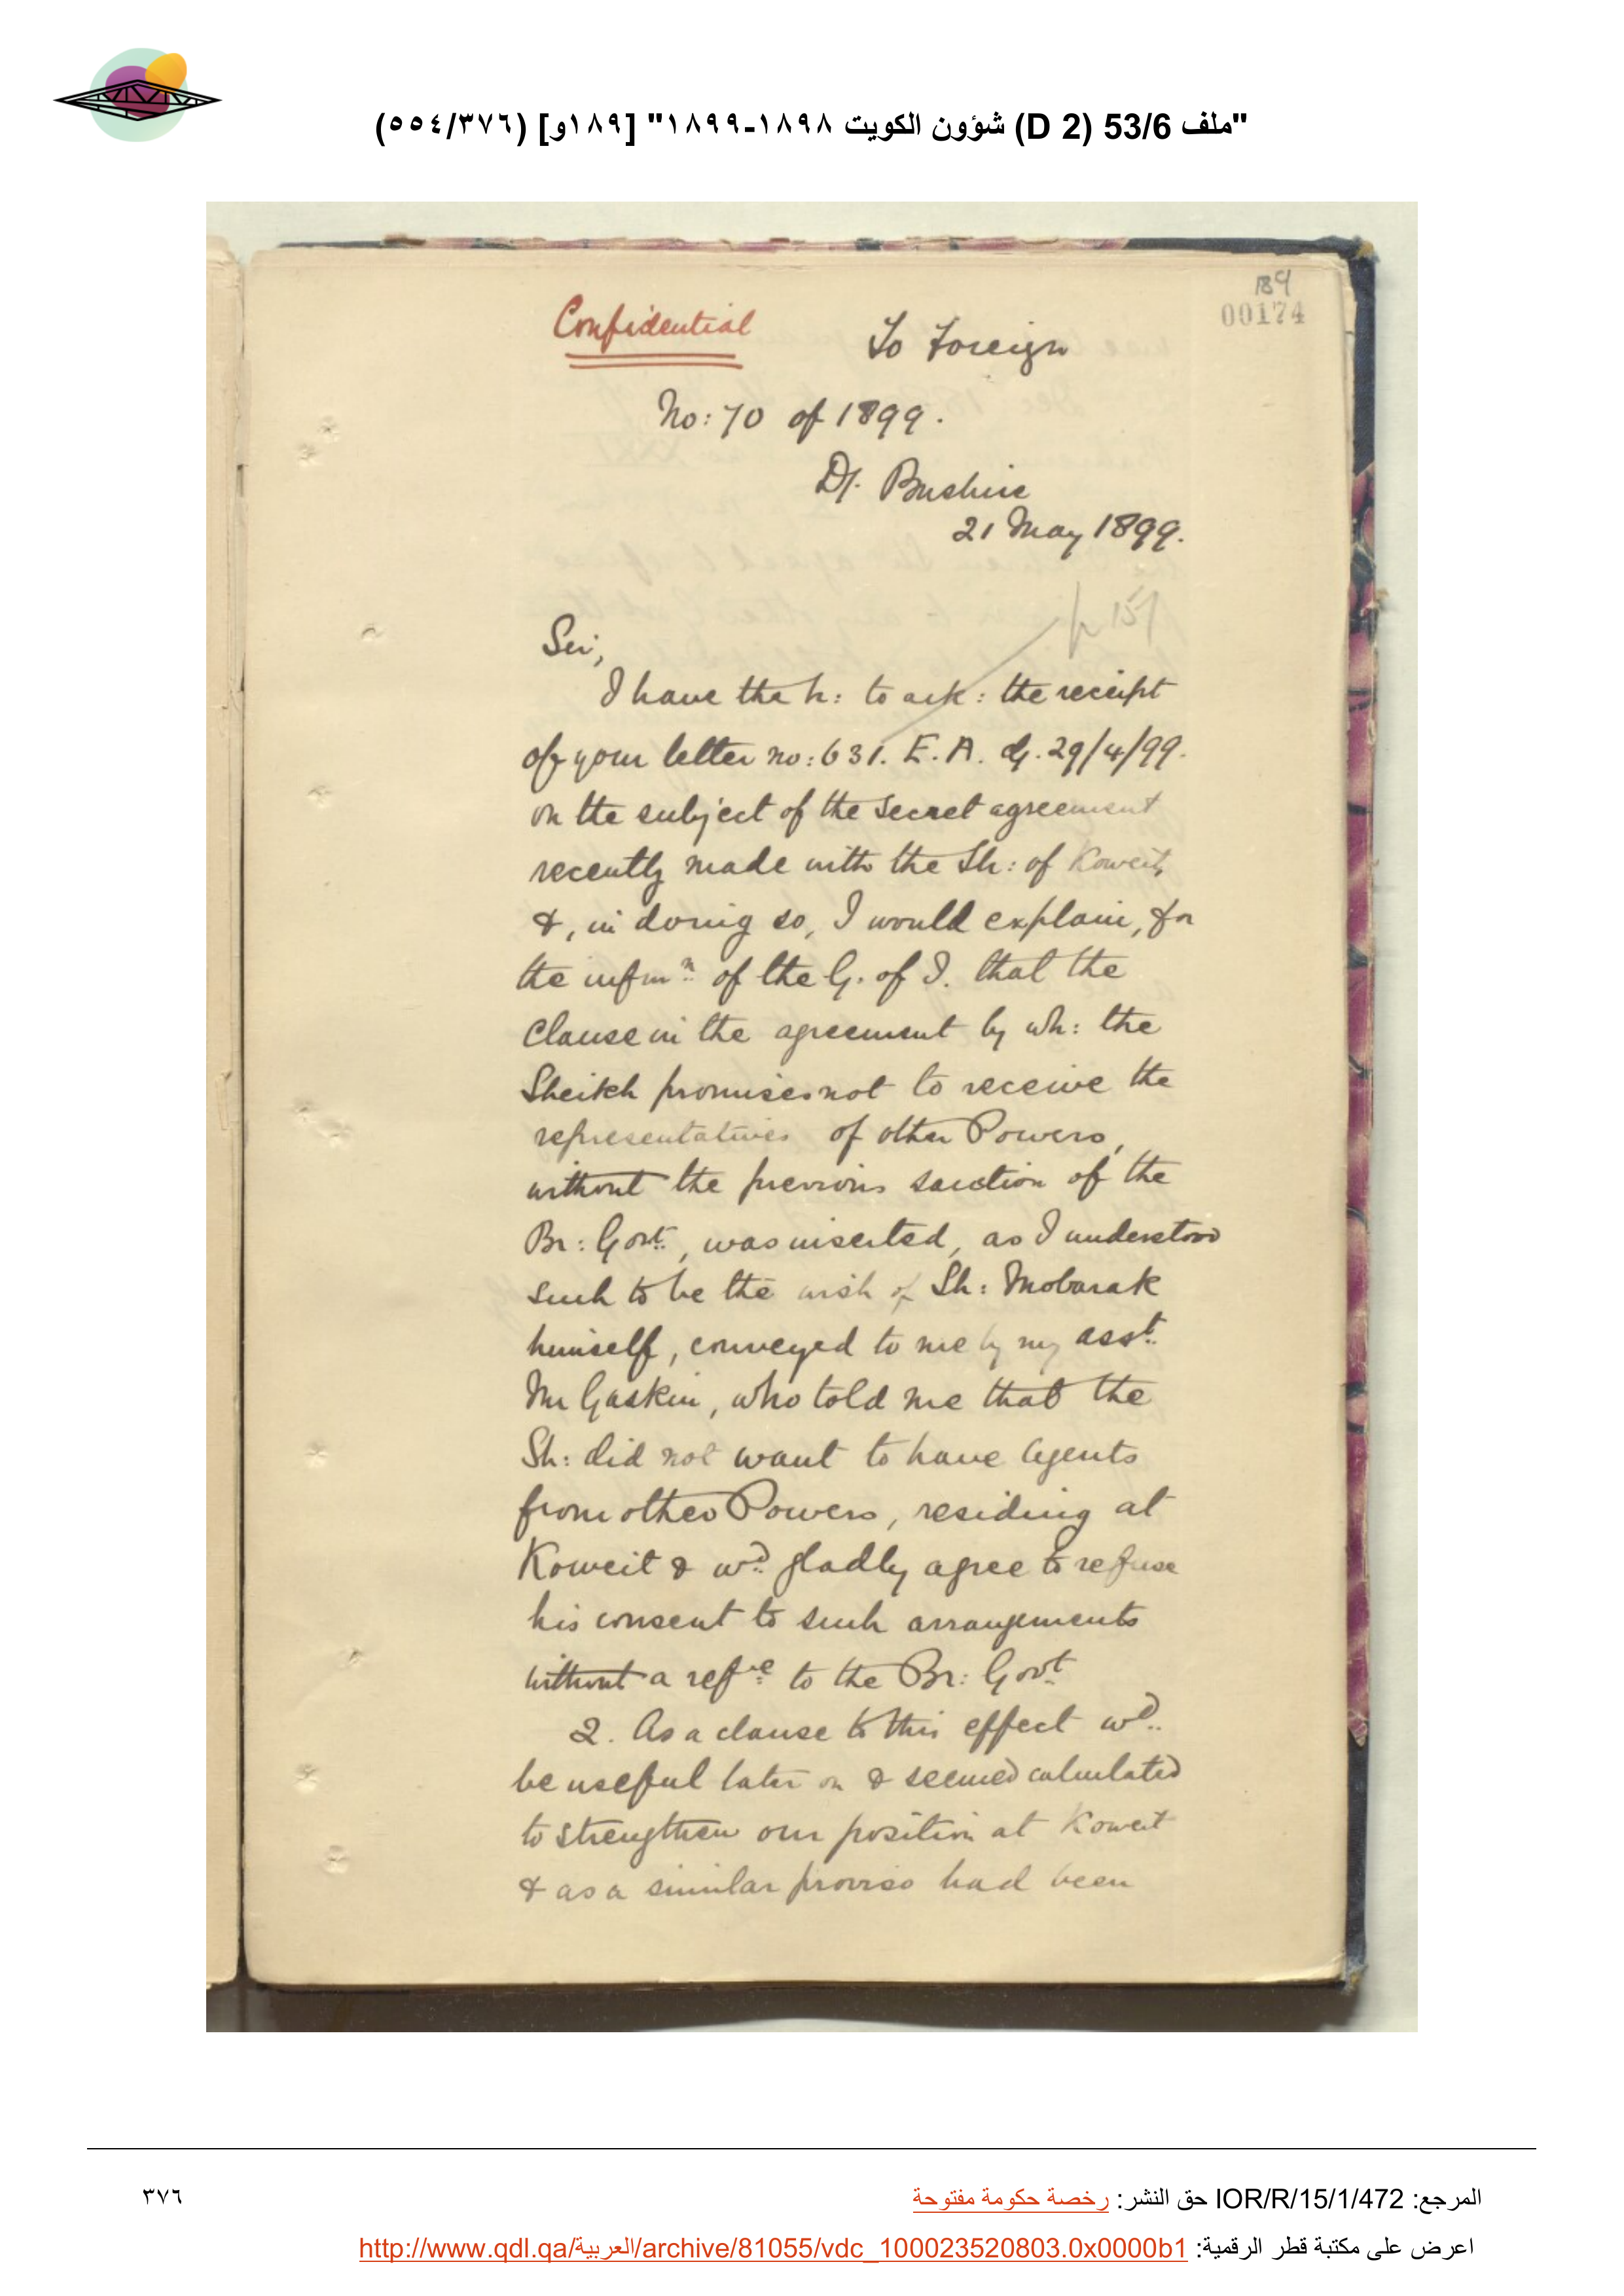 "ملف 53/6 (D 2) شؤون الكويت ١٨٩٨-١٨٩٩" [١٨٩و] (٥٥٤/٣٧٦)
189
00174
Confidential
To Foreign
No: 70 of 1899.
Dt. Bushire
21 May 1899.
p 157
Sir,
I have the h: to ack: the receipt
of your letter no: 631. E.A. d/. 29/4/99.
on the subject of the secret agreement
recently made with the Sh: of Koweit,
&, in doing so, I would explain, for
the infmn. of the G. of I. that the
Clause in the agreement by wh: the
Sheikh promises not to receive the
representatives of other Powers,
without the previous sanction of the
Br: Govt., was inserted, as I understood
such to be the wish of Sh: Mobarak
himself, conveyed to me by my asst.
Mr Gaskin, who told me that the
Sh: did not want to have Agents
from other Powers, residing at
Koweit & wd. gladly agree to refuse
his consent to such arrangements
without a refce. to the Br: Govt.
2. As a clause to this effect wd.
be useful later on & seemed calculated
to strengthen our position at Koweit
& as a similar proviso had been
المرجع: IOR/R/15/1/472 حق النشر: رخصة حكومة مفتوحة
٣٧٦
اعرض على مكتبة قطر الرقمية: http://www.qdl.qa/العربية/archive/81055/vdc_100023520803.0x0000b1